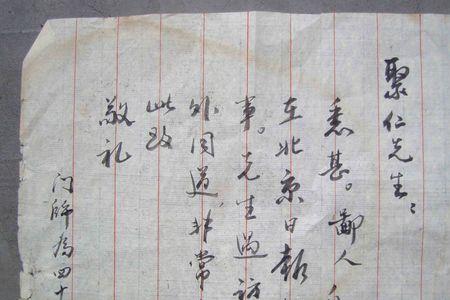 聚仁先生:
悉甚。鄙人
在北京日報
事。先生過訪
外间道，非常
此致
敬礼
门師為四十